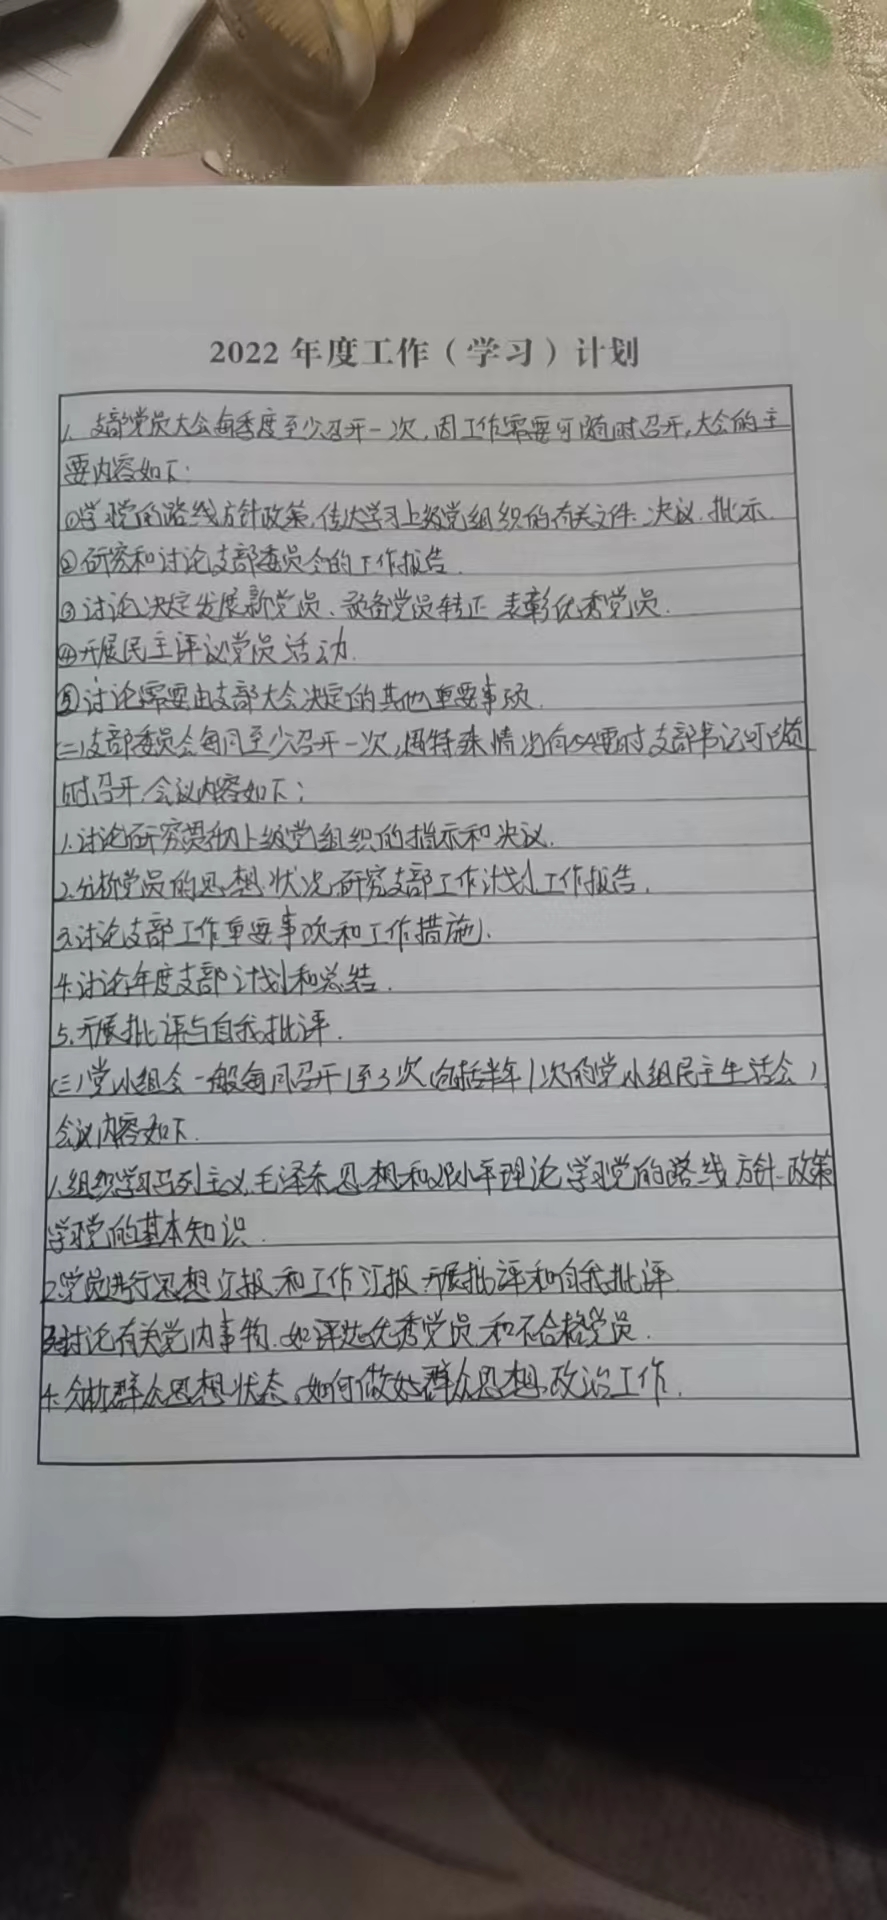 2022 年度工作（学习）计划
1. 支部党员大会每季度至少召开一次，因工作需要可随时召开，大会的主
要内容如下：
①学习党的路线方针政策，传达学习上级党组织的有关文件、决议、批示.
②研究和讨论支部委员会的工作报告.
③讨论决定发展新党员、预备党员转正 表彰优秀党员.
④开展民主评议党员活动.
⑤讨论需要由支部大会决定的其他重要事项.
(二)支部委员会每月至少召开一次，遇特殊情况有必要时支部书记可随
时召开，会议内容如下：
1.讨论研究贯彻上级党组织的指示和决议.
2.分析党员的思想状况 研究支部工作计划、工作报告.
3.讨论支部工作重要事项和工作措施.
4.讨论年度支部计划和总结.
5.开展批评与自我批评.
(三)党小组会 一般每月召开1至3次（包括半年1次的党小组民主生活会）
会议内容如下.
1.组织学习马列主义、毛泽东思想和邓小平理论 学习党的路线、方针、政策
学习党的基本知识.
2.党员进行思想汇报和工作汇报 开展批评和自我批评
3.讨论有关党内事物、如评选优秀党员和不合格党员.
4.分析群众思想状态，如何做好群众思想政治工作.